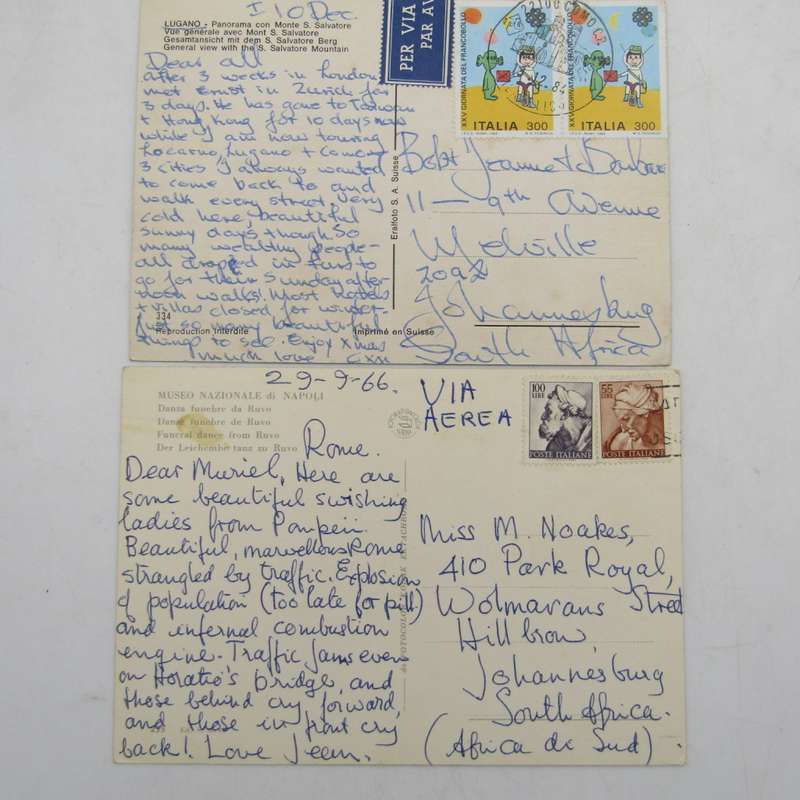 I 10 Dec.
LUGANO - Panorama con Monte S. Salvatore
Vue générale avec Mont S. Salvatore
Gesamtansicht mit dem S. Salvatore Berg
General view with the S. Salvatore Mountain
Dear all
After 3 weeks in London
met Ernst in Zurich for
3 days. He has gone to Taiwan
+ Hong Kong for 10 days now
while I am now touring
Locarno, Lugano + Como
3 cities I always wanted
to come back to and
walk every street. Very
cold here, beautiful
sunny days though. So
many wealthy people -
all draped in furs to
go for their Sunday after
noon walks! Most hotels
+ villas closed for winter -
Just so many beautiful
things to see. Enjoy Xmas
much love
334
Reproduction interdite
Imprimé en Suisse
Eralfoto S. A. Suisse
PER VIA
PAR AV
22100 COMO
XXV GIORNATA DEL FRANCOBOLLO
ITALIA 300
XXV GIORNATA DEL FRANCOBOLLO
ITALIA 300
Jeanne + Barbara
11 - 9th Avenue
Melville
2092
Johannesburg
South Africa
29-9-66.
MUSEO NAZIONALE di NAPOLI
Danza funebre da Ruvo
Danse funèbre de Ruvo
Funeral dance from Ruvo
Der Leichenbe tanz zu Ruvo
Rome.
Dear Muriel, Here are
some beautiful swishing
ladies from Pompeii.
Beautiful, marvellous Rome
strangled by traffic. Explosion
of population (too late for pill)
and infernal combustion
engine. Traffic jams even
on Horatio's bridge, and
those behind cry forward,
and those in front cry
back! Love Jean.
VIA
AEREA
100
LIRE
POSTE ITALIANE
55
LIRE
POSTE ITALIANE
Miss M. Noakes,
410 Park Royal,
Wolmarans Street
Hillbrow,
Johannesburg
South Africa.
(Africa de Sud)